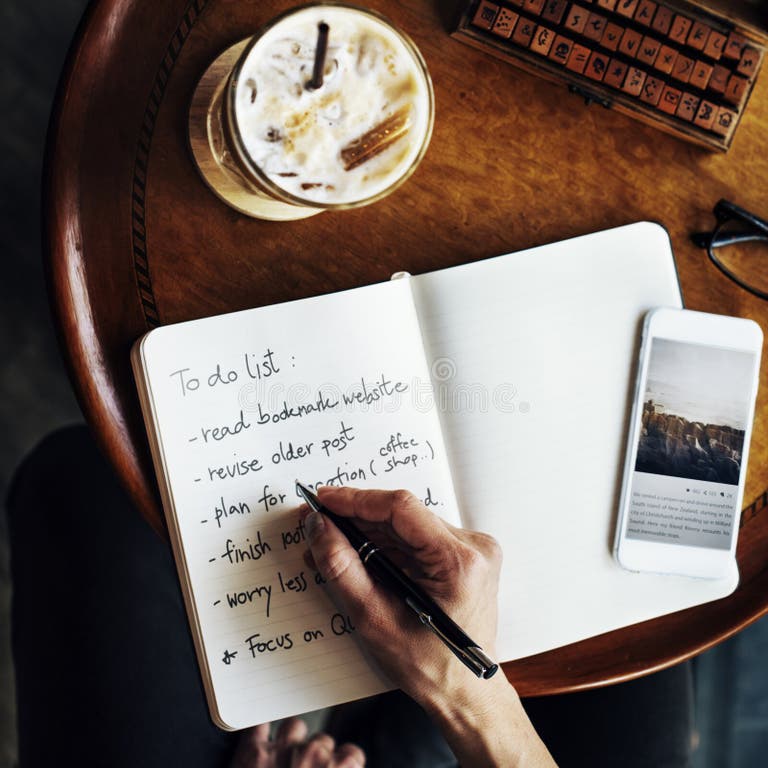 To do list :
- read bookmark website
- revise older post
- plan for vacation ( coffee shop.. )
- finish
- worry less
* Focus on
dreamstime
We rented a campervan and drove
around the south island of New Zealand, starting in
the city of Christchurch and winding up in
most memorable stops.